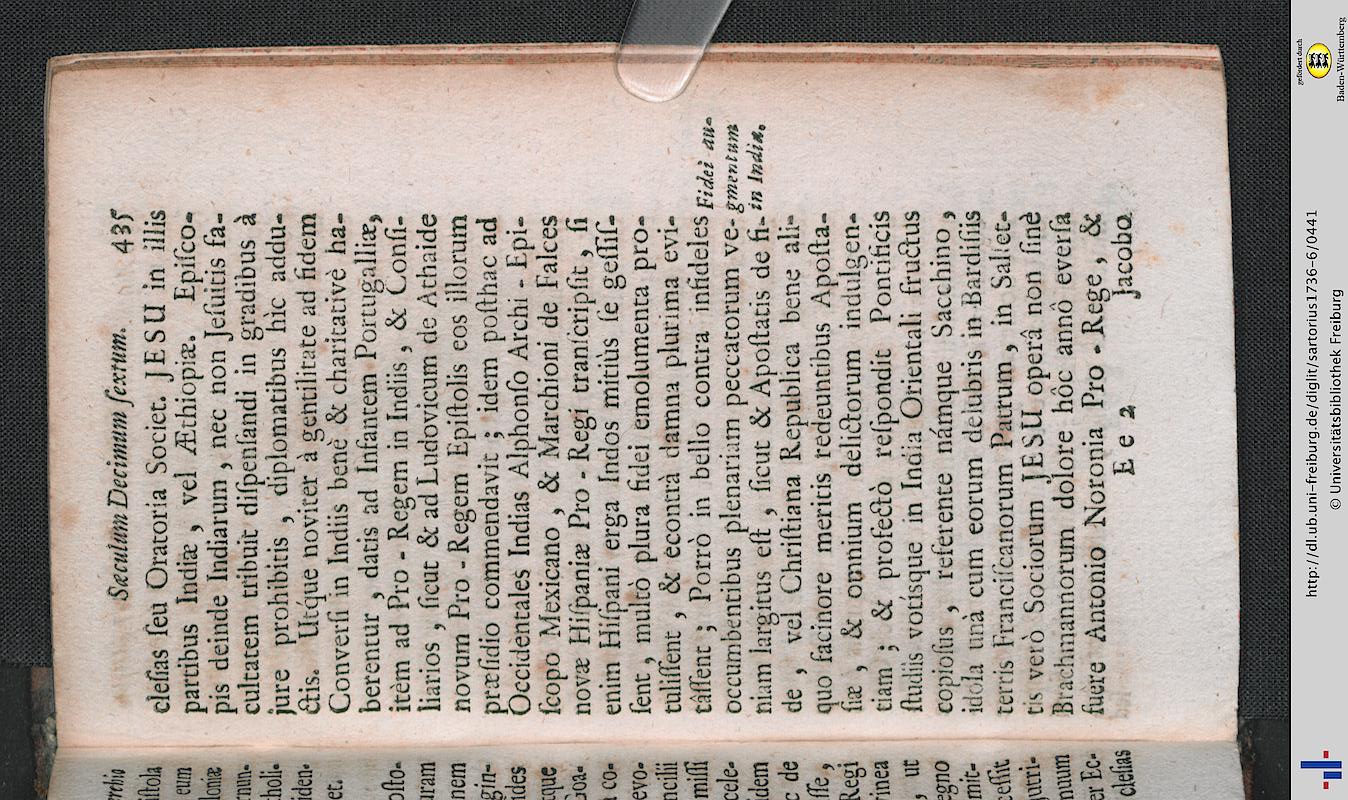 Sæculum Decimum ſextum. 435
cleſias ſeu Oratoria Societ. JESU in illis
partibus Indiæ, vel Æthiopiæ. Epiſco-
pis deinde Indiarum, nec non Jeſuitis fa-
cultatem tribuit diſpenſandi in gradibus à
jure prohibitis, diplomatibus hic addu-
ctis. Utque noviter à gentilitate ad fidem
Converſi in Indiis benè & charitativè ha-
berentur, datis ad Infantem Portugalliæ,
itèm ad Pro-Regem in Indiis, & Conſi-
liarios, ſicut & ad Ludovicum de Athaide
novum Pro-Regem Epiſtolis eos illorum
præſidio commendavit; idem poſthac ad
Occidentales Indias Alphonſo Archi-Epi-
ſcopo Mexicano, & Marchioni de Falces
novæ Hiſpaniæ Pro-Regi tranſcripſit, ſi
enim Hiſpani erga Indos mitiùs ſe geſſiſ-
ſent, multò plura fidei emolumenta pro-
tuliſſent, & econtrà damna plurima evi-
táſſent; Porrò in bello contra infideles
occumbentibus plenariam peccatorum ve-
niam largitus eſt, ſicut & Apoſtatis de fi-
de, vel Chriſtiana Republica bene ali-
quo facinore meritis redeuntibus Apoſta-
ſiæ, & omnium delictorum indulgen-
tiam; & profectò reſpondit Pontificis
ſtudiis votiſque in India Orientali fructus
copioſus, referente námque Sacchino,
idola unà cum eorum delubris in Bardiſis
terris Franciſcanorum Patrum, in Salſet-
tis verò Sociorum JESU operâ non ſinè
Brachmannorum dolore hôc annô everſa
fuêre Antonio Noronia Pro-Rege, &
E e 2 Jacobo
Fidei au-
gmentum
in India.
rrehio
ſtola
eum
loniæ
rnun-
holi-
iden-
et.
oſto-
uram
nem
gin-
ides
que
Goa-
n co-
evo-
ncilii
miſſi
cele-
idem
c de
ſſe,
Regi
vinea
, ut
egno
mit-
ceſſit
juri-
mum
er Ec-
cleſias
http://dl.ub.uni-freiburg.de/diglit/sartorius1736-6/0441
© Universitätsbibliothek Freiburg
gefördert durch
Baden-Württemberg